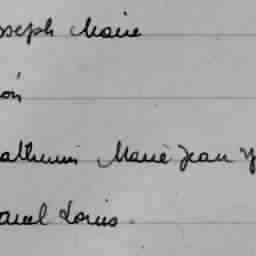 oseph Marie
on
atherin Marie Jean Y
aul Louis